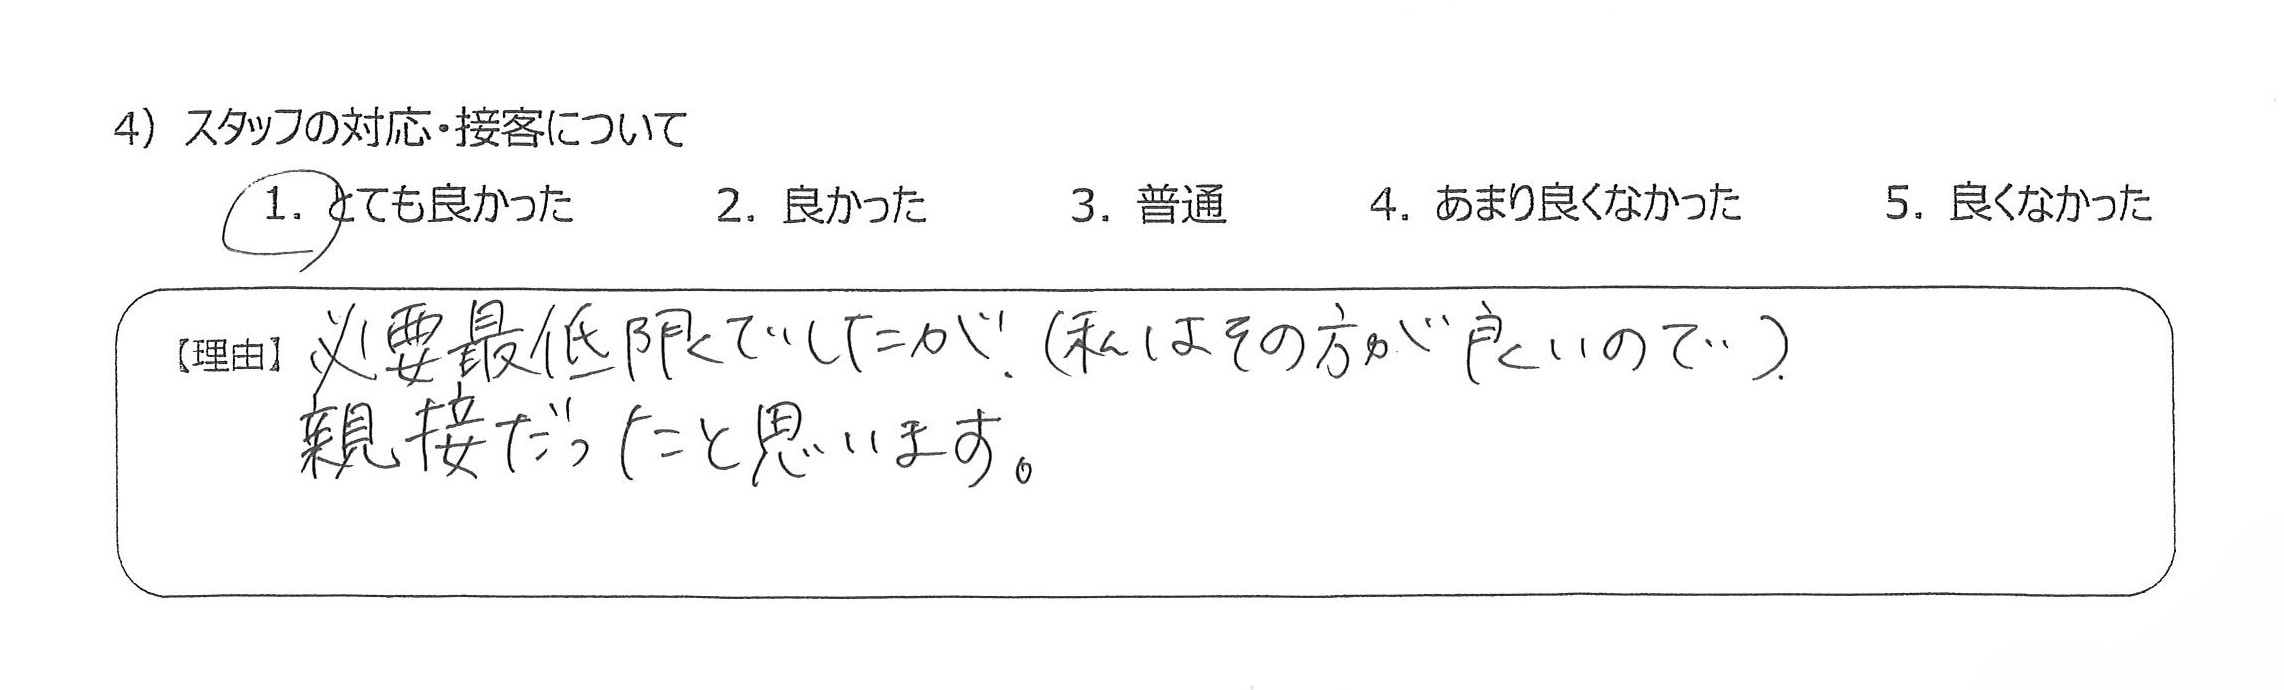 4) スタッフの対応・接客について
1. とても良かった 2. 良かった 3. 普通 4. あまり良くなかった 5. 良くなかった
【理由】必要最低限でしたが、(私はその方が良いので)、
親接だったと思います。